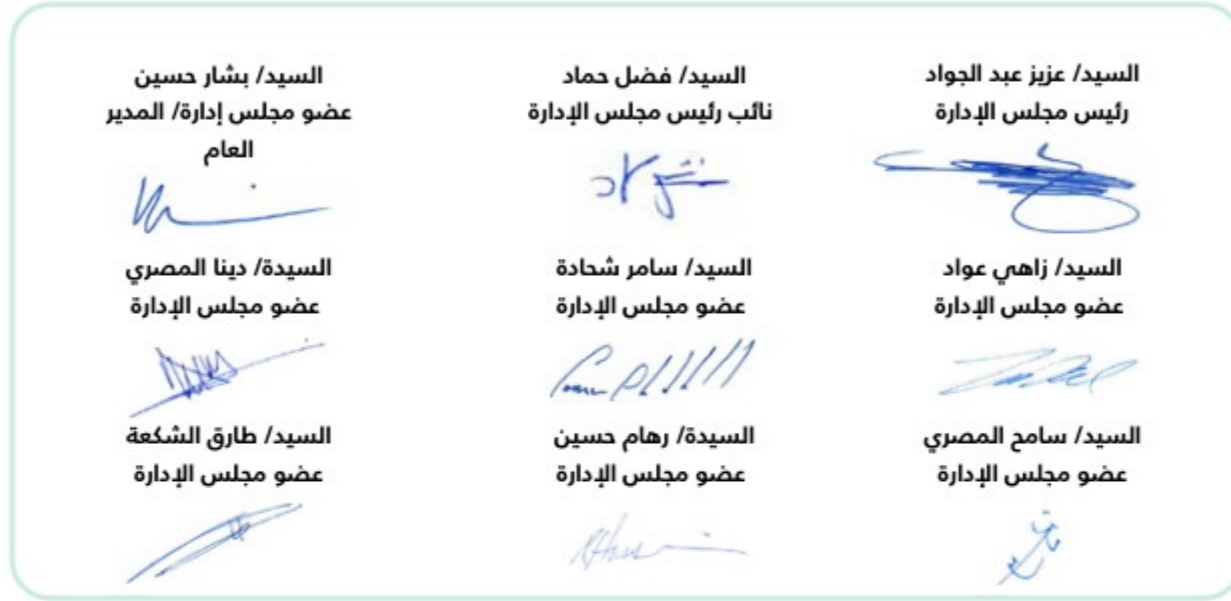 السيد/ عزيز عبد الجواد
رئيس مجلس الإدارة
السيد/ فضل حماد
نائب رئيس مجلس الإدارة
السيد/ بشار حسين
عضو مجلس إدارة/ المدير
العام
السيد/ زاهي عواد
عضو مجلس الإدارة
السيد/ سامر شحادة
عضو مجلس الإدارة
السيدة/ دينا المصري
عضو مجلس الإدارة
السيد/ سامح المصري
عضو مجلس الإدارة
السيدة/ رهام حسين
عضو مجلس الإدارة
السيد/ طارق الشكعة
عضو مجلس الإدارة